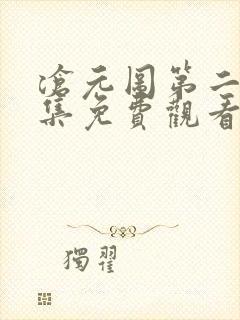 滄元圖第二
集免費觀看
獨翟